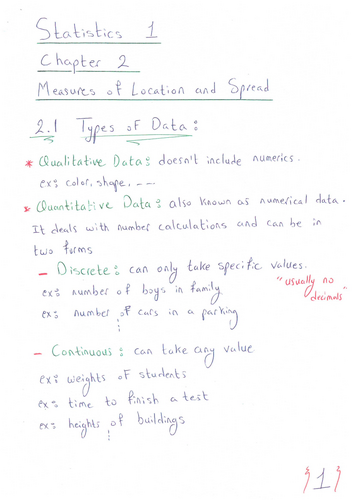 Statistics 1
Chapter 2
Measures of Location and Spread
2.1 Types of Data:
* Qualitative Data: doesn't include numerics.
ex: color, shape, ---
* Quantitative Data: also known as numerical data.
It deals with number calculations and can be in
two forms
- Discrete: can only take specific values.
ex: number of boys in family
"usually no
decimals"
ex: number of cars in a parking
- Continuous: can take any value
ex: weights of students
ex: time to finish a test
ex: heights of buildings
{1}